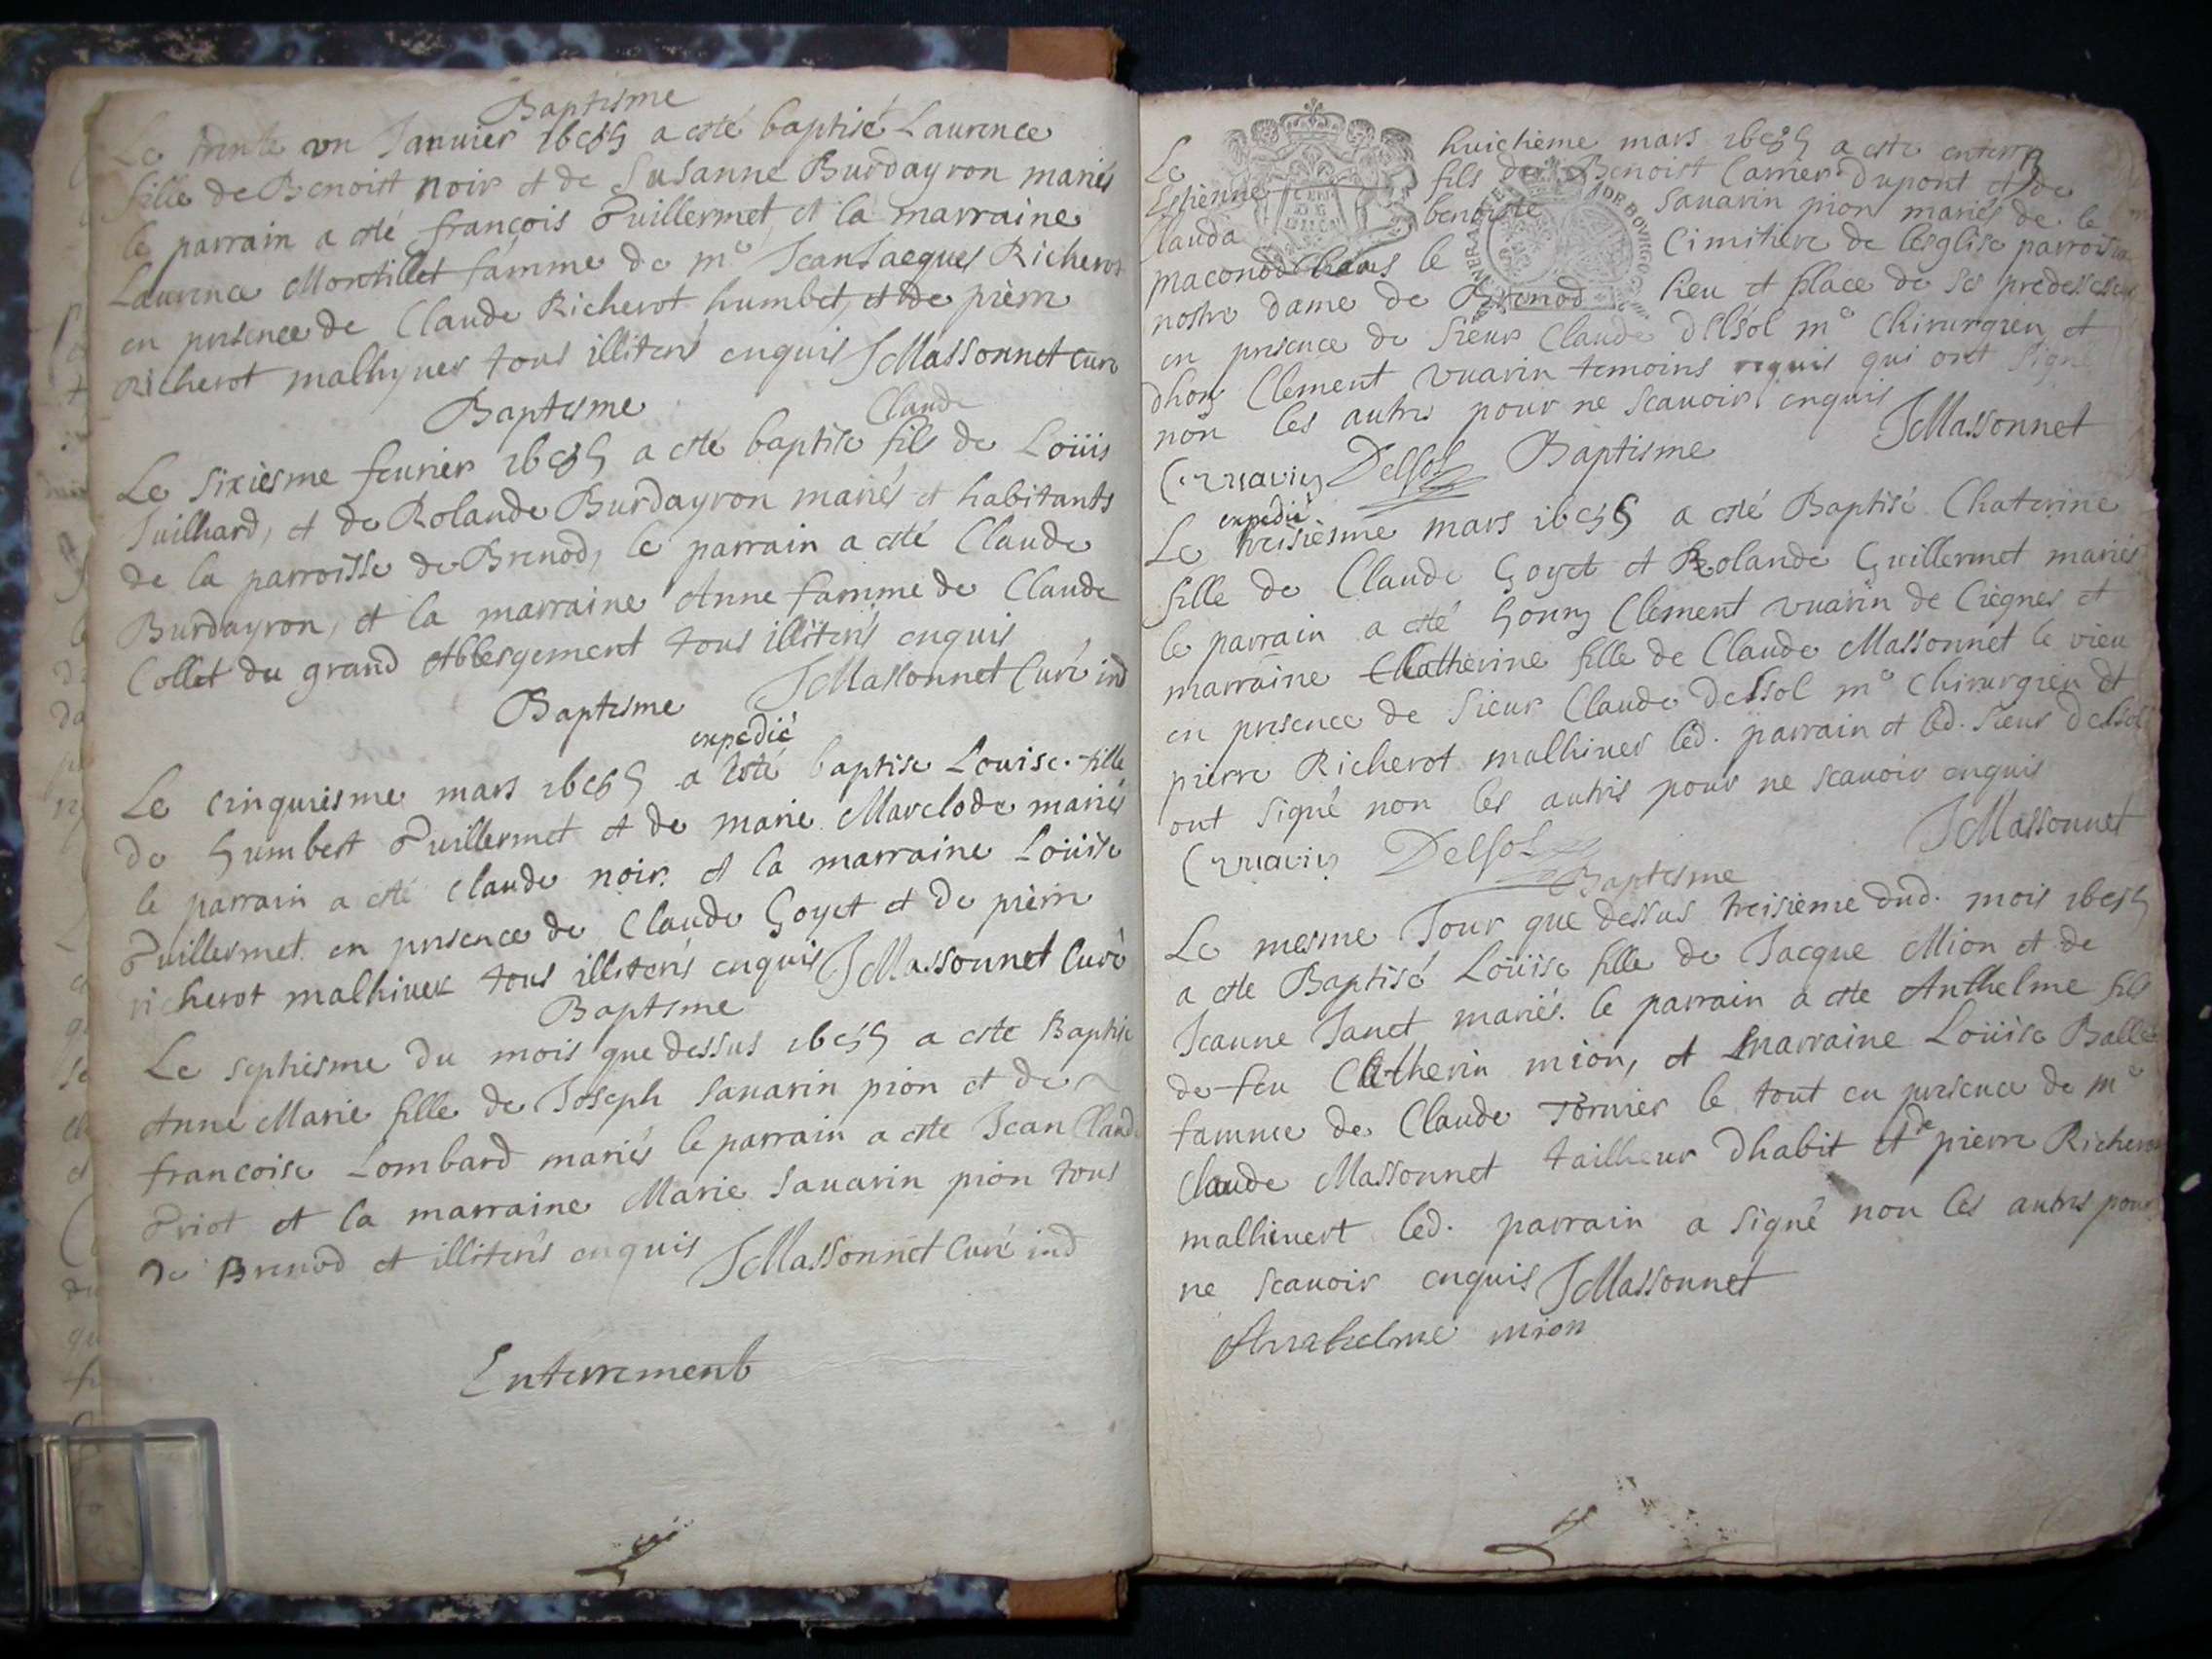 Baptisme
Le trente un Januier 1689 a esté baptisé Laurence
fille de Benoist noir et de Susanne Burdayron mariés
le parrain a esté françois Guillermet et la marraine
Laurence Montillet famme de me Jean Jacques Richerot
en presence de Claude Richerot humbet, et de pierre
Richerot malhyuer tous illiterés enquis J Massonnet curé
Baptesme
Claude
Le sixiesme feurier 1689 a esté baptisé fils de Loüis
Juilhard, et de Rolande Burdayron mariés et habitants
de la parroisse de Brenod, le parrain a esté Claude
Burdayron, et la marraine Anne famme de Claude
Collet du grand Abbergement tous illiterés enquis
J Massonnet Curé ind
Baptesme
expedié
Le cinquiesme mars 1689 a esté baptisé Louise fille
de humbert Guillermet et de marie Marclode mariés
le parrain a esté claude noir et la marraine Loüise
Guillermet en presence de Claude Goyet et de pierre
richerot malhiuer tous illiterés enquis J Massonnet Curé
Baptesme
Le septiesme du mois que dessus 1689 a esté Baptisé
Anne Marie fille de Joseph Sauarin pion et de
francoise Lombard mariés le parrain a esté Jean Claude
Griot et la marraine Marie Sauarin pion tous
de Brenod et illiterés enquis J Massonnet Curé ind
Enterrement
Le huictieme mars 1689 a esté enterré
Estienne fils de Benoist Carrier Dupont et de
Clauda Sauarin pion mariés de le
maconod dans le Cimitiere de lesglise parroissia
nostre dame de Brenod lieu et place de ses predecesseurs
en presence de Sieur Claude Delsol me Chirurgien et
dhon Clement vuarin temoins requis qui ont signé
non les autres pour ne scauoir enquis
J Massonnet
C vuarin Delsol Baptisme
expedié
Le treisiesme mars 1689 a esté Baptisé Chaterine
fille de Claude Goyet et Rolande Guillermet mariés
le parrain a esté hon Clement vuarin de Ciegnes et
marraine Chatherine fille de Claude Massonnet le vieu
en presence de Sieur Claude Delsol me Chirurgien et
pierre Richerot malhiuer led. parrain et led. Sieur Delsol
ont signé non les autres pour ne scauoir enquis
J Massonnet
C vuarin Delsol
Baptesme
Le mesme Jour que dessus treisieme dud. mois 1689
a esté Baptisé Loüise fille de Jacque Mion et de
Jeanne Janet mariés le parrain a esté Anthelme fils
de feu Catherin mion, et marraine Loüise Ballet
famme de Claude Tornier le tout en presence de me
Claude Massonnet tailleur dhabit et de pierre Richerot
malhiuert led. parrain a signé non les autres pour
ne scauoir enquis J Massonnet
Anthelme mion